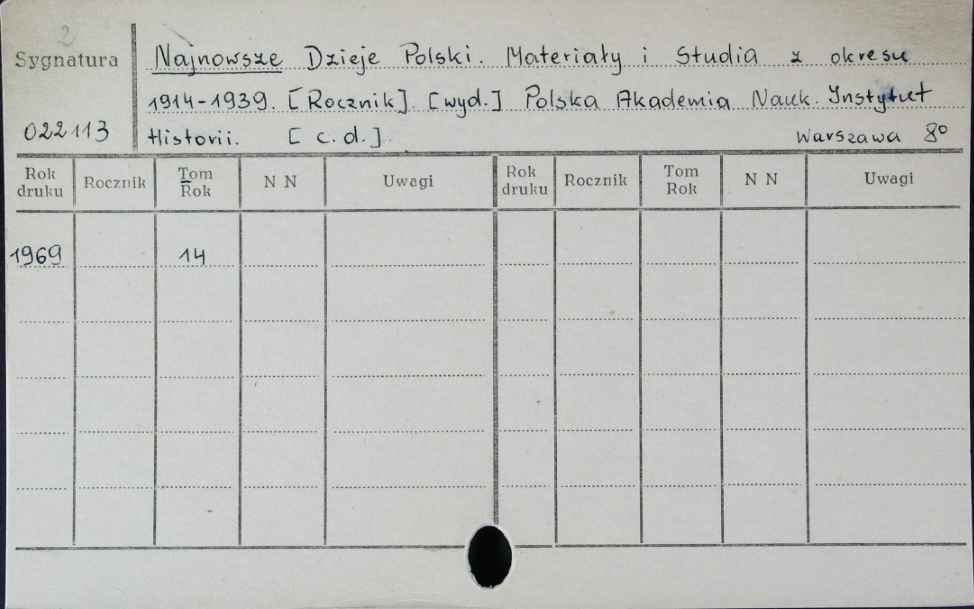 2
Sygnatura
Najnowsze Dzieje Polski. Materiały i Studia z okresu
1914-1939. [Rocznik]. [wyd.] Polska Akademia Nauk. Instytut
022113 Historii. [c.d.] Warszawa 8°
Rok druku Rocznik Tom Rok N N Uwagi Rok druku Rocznik Tom Rok N N Uwagi
1969 14